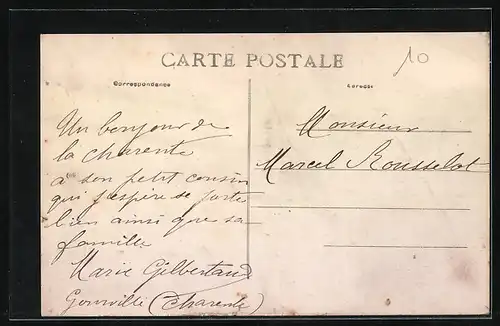 CARTE POSTALE
10
Correspondance
Adresse
Un bonjour de
la Charente
a son petit cousin
qui j'espère se porte
bien ainsi que sa
famille
Marie
Gourville (Charente)
Monsieur
Marcel Rousselot